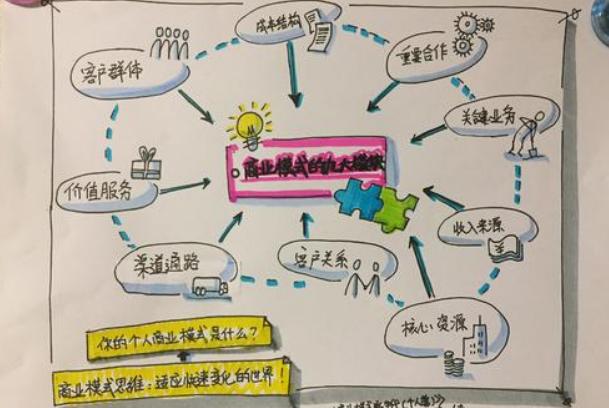 成本结构
客户群体
重要合作
关键业务
商业模式的九大模块
价值服务
收入来源
渠道通路
客户关系
核心资源
你的个人商业模式是什么？
商业模式思维：适应快速变化的世界！